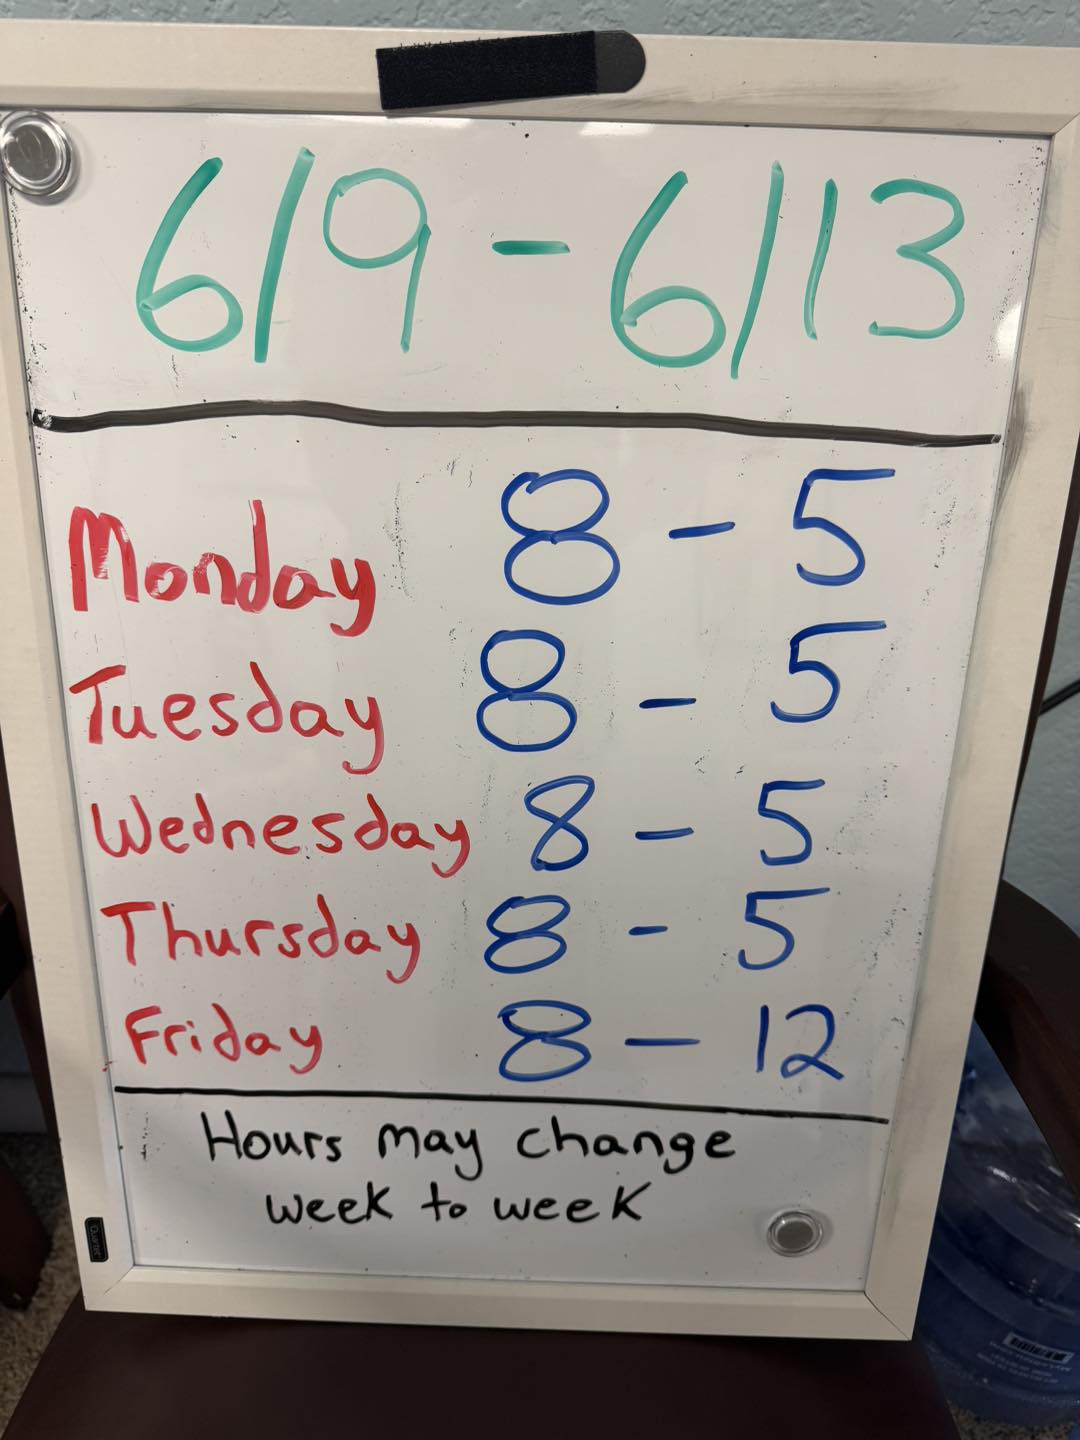 6/9 - 6/13
Monday 8 - 5
Tuesday 8 - 5
Wednesday 8 - 5
Thursday 8 - 5
Friday 8 - 12
Hours may change
week to week